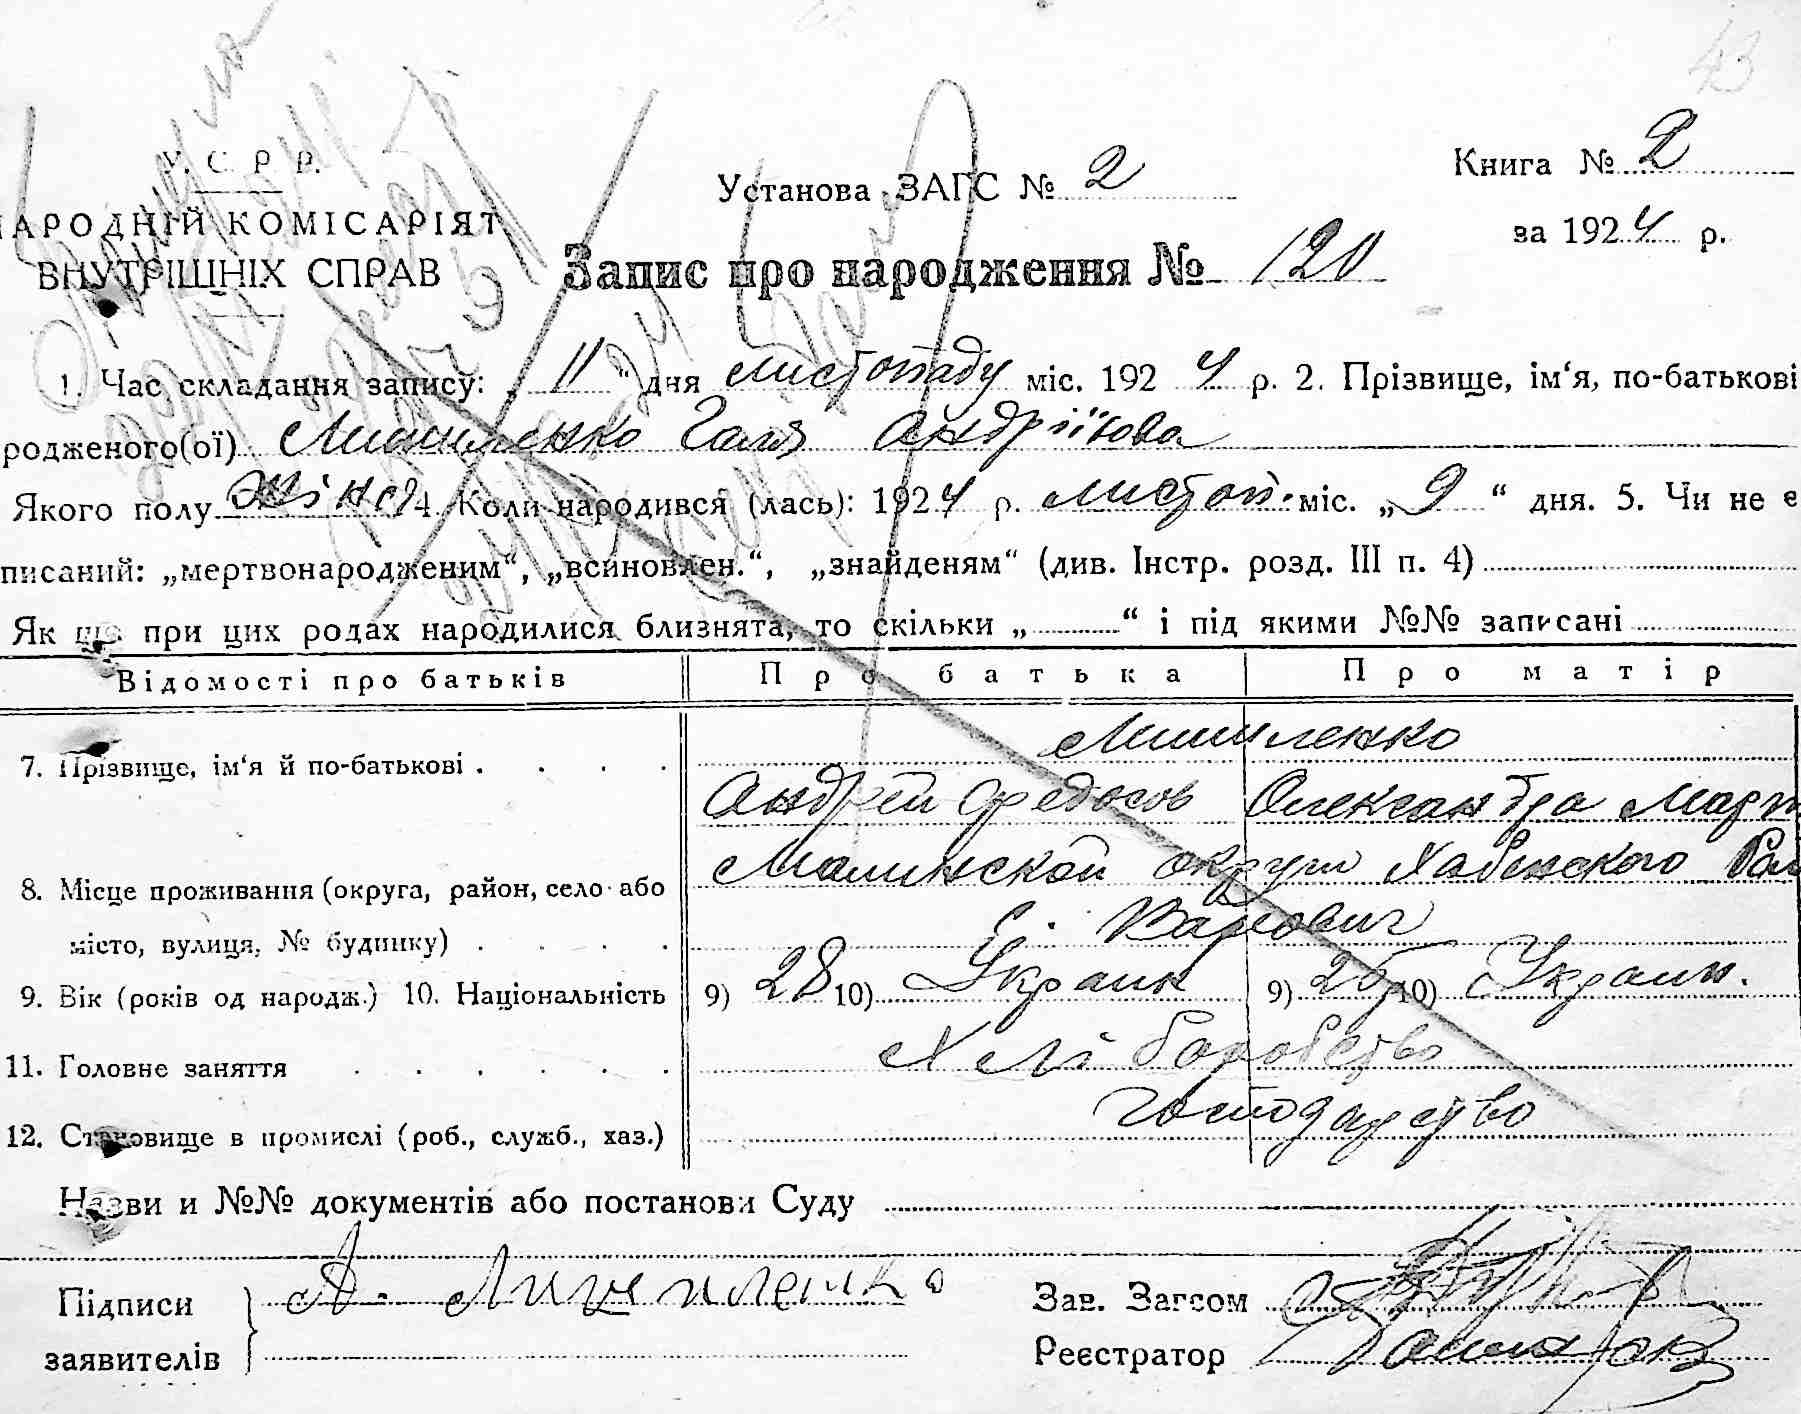 43
У. С. Р. Р.
НАРОДНІЙ КОМІСАРІЯТ
ВНУТРІШНІХ СПРАВ
Установа ЗАГС № 2
Книга № 2
за 1924 р.
Запис про народження № 120
1. Час складання запису: „ 11 “ дня листопаду міс. 1924 р. 2. Прізвище, ім‘я, по-батькові
родженого(ої) Лишиленко Галя Андріїова
Якого полу жіноч 4. Коли народився (лась): 1924 р. листоп. міс. „ 9 “ дня. 5. Чи не є
писаний: „мертвонародженим“, „всиновлен.“, „знайденям“ (див. Інстр. розд. III п. 4)
Як що при цих родах народилися близнята, то скільки „ “ і під якими №№ записані
Відомості про батьків Про батька Про матір
7. Прізвище, ім‘я й по-батькові . . . . Лишиленко
Андрей Федосов Олександра Март
8. Місце проживання (округа, район, село або Малинской округи Хабенского Рай
місто, вулиця, № будинку) . . . . С. Варович
9. Вік (років од народж.) 10. Національність 9) 28 10) Украин 9) 26 10) Украин.
11. Головне заняття . . . . . . Хліборобство
12. Становище в промислі (роб., служб., хаз.) господарство
Назви и №№ документів або постанови Суду
Підписи А. Лишиленко Зав. Загсом
заявителів Реєстратор